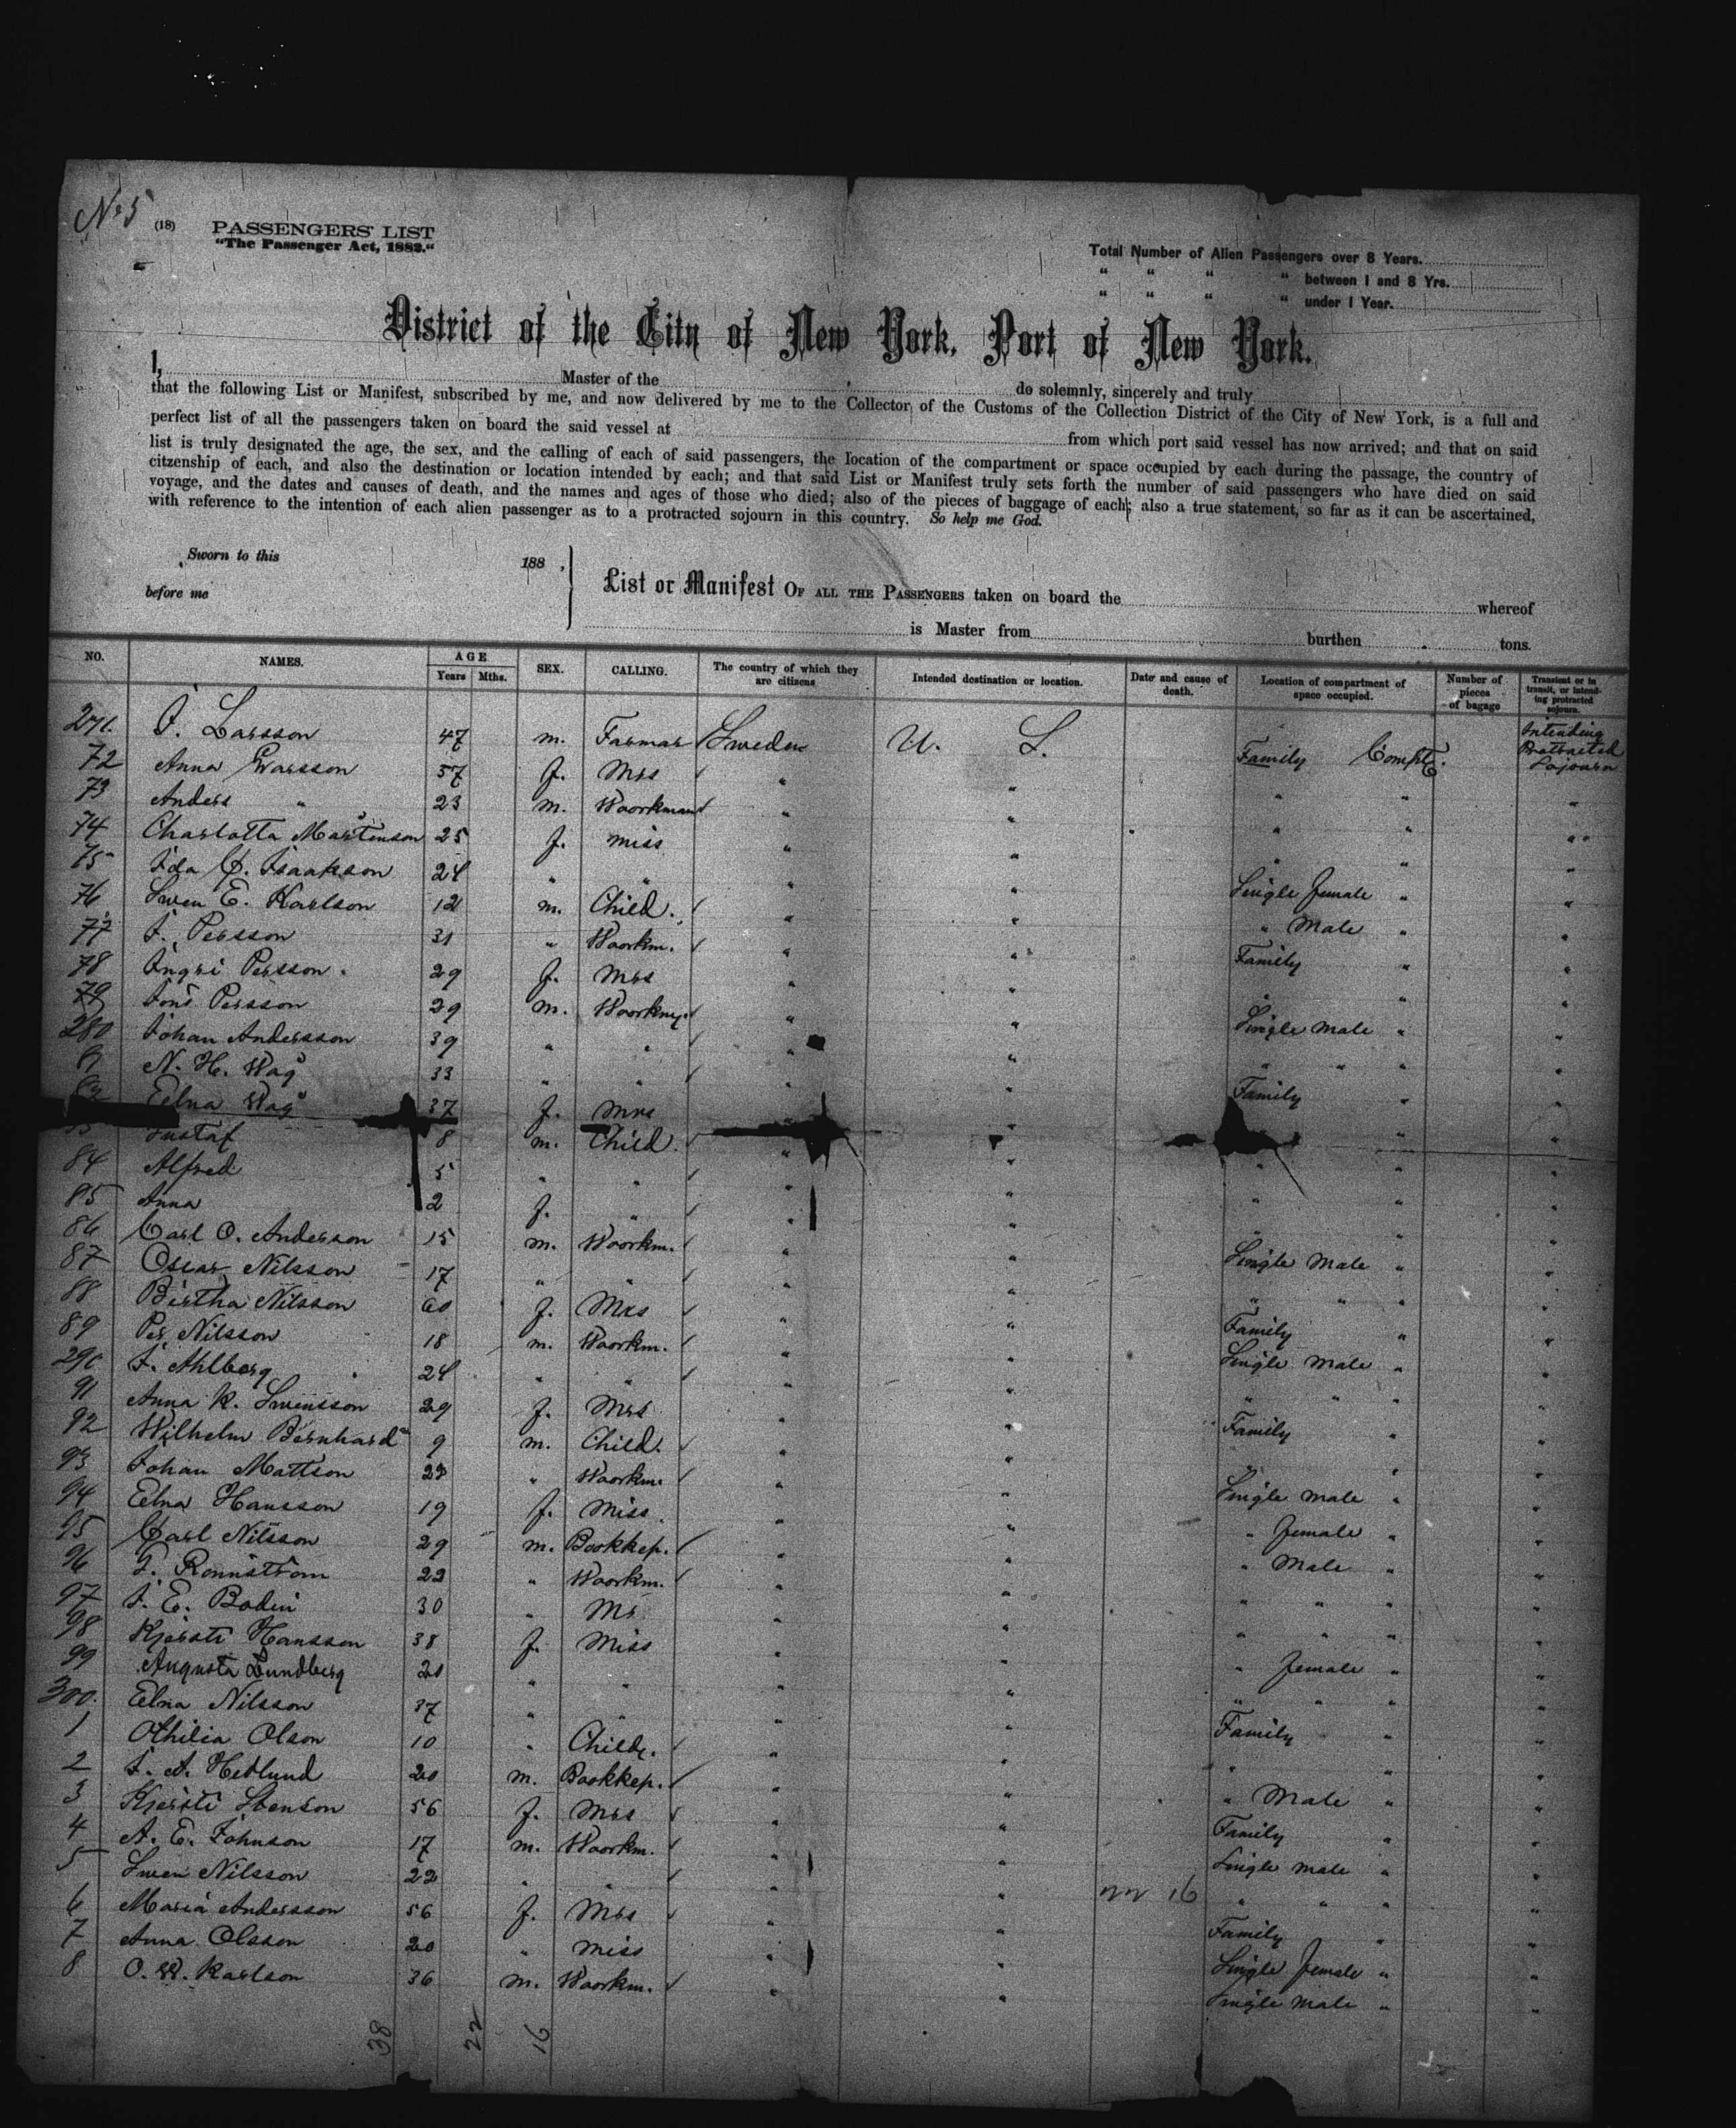 No 5
(18) PASSENGERS' LIST
"The Passenger Act, 1882."
Total Number of Alien Passengers over 8 Years.
" " " " between 1 and 8 Yrs.
" " " " under 1 Year.
District of the City of New York, Port of New York.
I, Master of the do solemnly, sincerely and truly
that the following List or Manifest, subscribed by me, and now delivered by me to the Collector of the Customs of the Collection District of the City of New York, is a full and
perfect list of all the passengers taken on board the said vessel at from which port said vessel has now arrived; and that on said
list is truly designated the age, the sex, and the calling of each of said passengers, the location of the compartment or space occupied by each during the passage, the country of
citzenship of each, and also the destination or location intended by each; and that said List or Manifest truly sets forth the number of said passengers who have died on said
voyage, and the dates and causes of death, and the names and ages of those who died; also of the pieces of baggage of each; also a true statement, so far as it can be ascertained,
with reference to the intention of each alien passenger as to a protracted sojourn in this country. So help me God.
Sworn to this 188 ,
before me
List or Manifest OF ALL THE PASSENGERS taken on board the whereof
is Master from burthen tons.
NO. NAMES. AGE Years Mths. SEX. CALLING. The country of which they are citizens Intended destination or location. Date and cause of death. Location of compartment of space occupied. Number of pieces of bagage Transient or in transit, or intending protracted sojourn.
271. J. Larsson 47 m. Farmar Sweden U. S. Family Compt. Intending Protracted Sojourn
72 Anna Larsson 57 f. Mrs " " " " "
73 Anders " 23 m. Woorkman " " " " "
74 Charlotta Martenson 25 f. Miss " " " " "
75 Ida C. Isaakson 24 " " " " Single female " "
76 Swen E. Karlson 12 m. Child. " " " Male " "
77 J. Persson 31 " Woorkm. " " Family " "
78 Ingri Persson 29 f. Mrs " " " " "
79 Jons Persson 29 m. Woorkm. " " Single male " "
280 Johan Andersson 39 " " " " " " " "
81 N. H. Wag 33 " " " " Family " "
82 Elna Wag 37 f. Mrs " " " " "
Gustaf 8 m. Child. " " " " "
84 Alfred 5 " " " " " " "
85 Anna 2 f. " " " " " "
86 Carl O. Anderson 15 m. Woorkm. " " Single Male " "
87 Oscar Nilsson 17 " " " " " " " "
88 Bertha Nilsson 60 f. Mrs " " Family " "
89 Per Nilsson 18 m. Woorkm. " " Single Male " "
290 J. Ahlberg 24 " " " " " " " "
91 Anna K. Swensson 29 f. Mrs " " Family " "
92 Wilhelm Bernhard " 9 m. Child. " " " " "
93 Johan Mattson 23 " Woorkm. " " Single male " "
94 Elna Hansson 19 f. Miss. " " " female " "
95 Carl Nilsson 29 m. Bookkep. " " " Male " "
96 F. Ronnström 22 " Woorkm. " " " " " "
97 J. E. Bodin 30 " Mr " " " " " "
98 Kjersti Hansson 38 f. Miss " " " female " "
99 Augusta Lundberg 20 " " " " " " " "
300. Elna Nilsson 37 " " " " Family " "
1 Othilia Olson 10 " Childr. " " " " "
2 J. A. Hedlund 20 m. Bookkep. " " " Male " "
3 Kjersti Stenson 56 f. Mrs " " Family " "
4 A. E. Johnson 17 m. Woorkm. " " Single male " "
5 Swen Nilsson 22 " " " " 22 16 " " " "
6 Maria Andersson 56 f. Mrs " " Family " "
7 Anna Olsson 20 " Miss " " Single female " "
8 O. W. Karlson 36 m. Woorkm. " " Single male " "
38 22 16